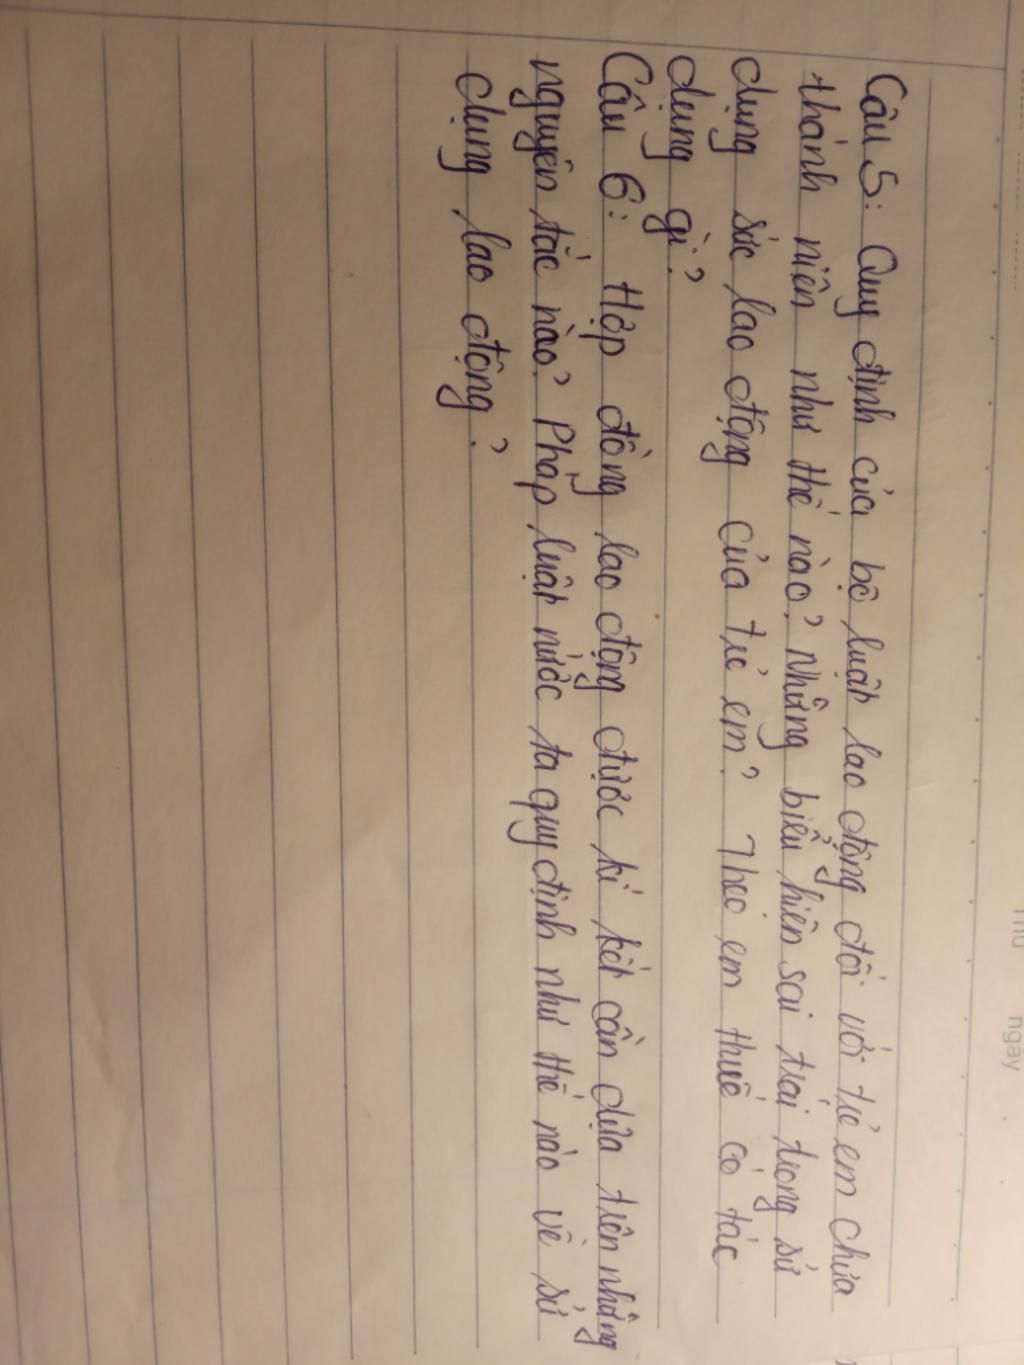 Câu 5: Quy định của bộ luật lao động đối với trẻ em chưa
thành niên như thế nào? Những biểu hiện sai trái trong sử
dụng sức lao động của trẻ em? Theo em thuế có tác
dụng gì?
Câu 6: Hợp đồng lao động được kí kết cần dựa trên những
nguyên tắc nào? Pháp luật nước ta quy định như thế nào về sử
dụng lao động?
ngày